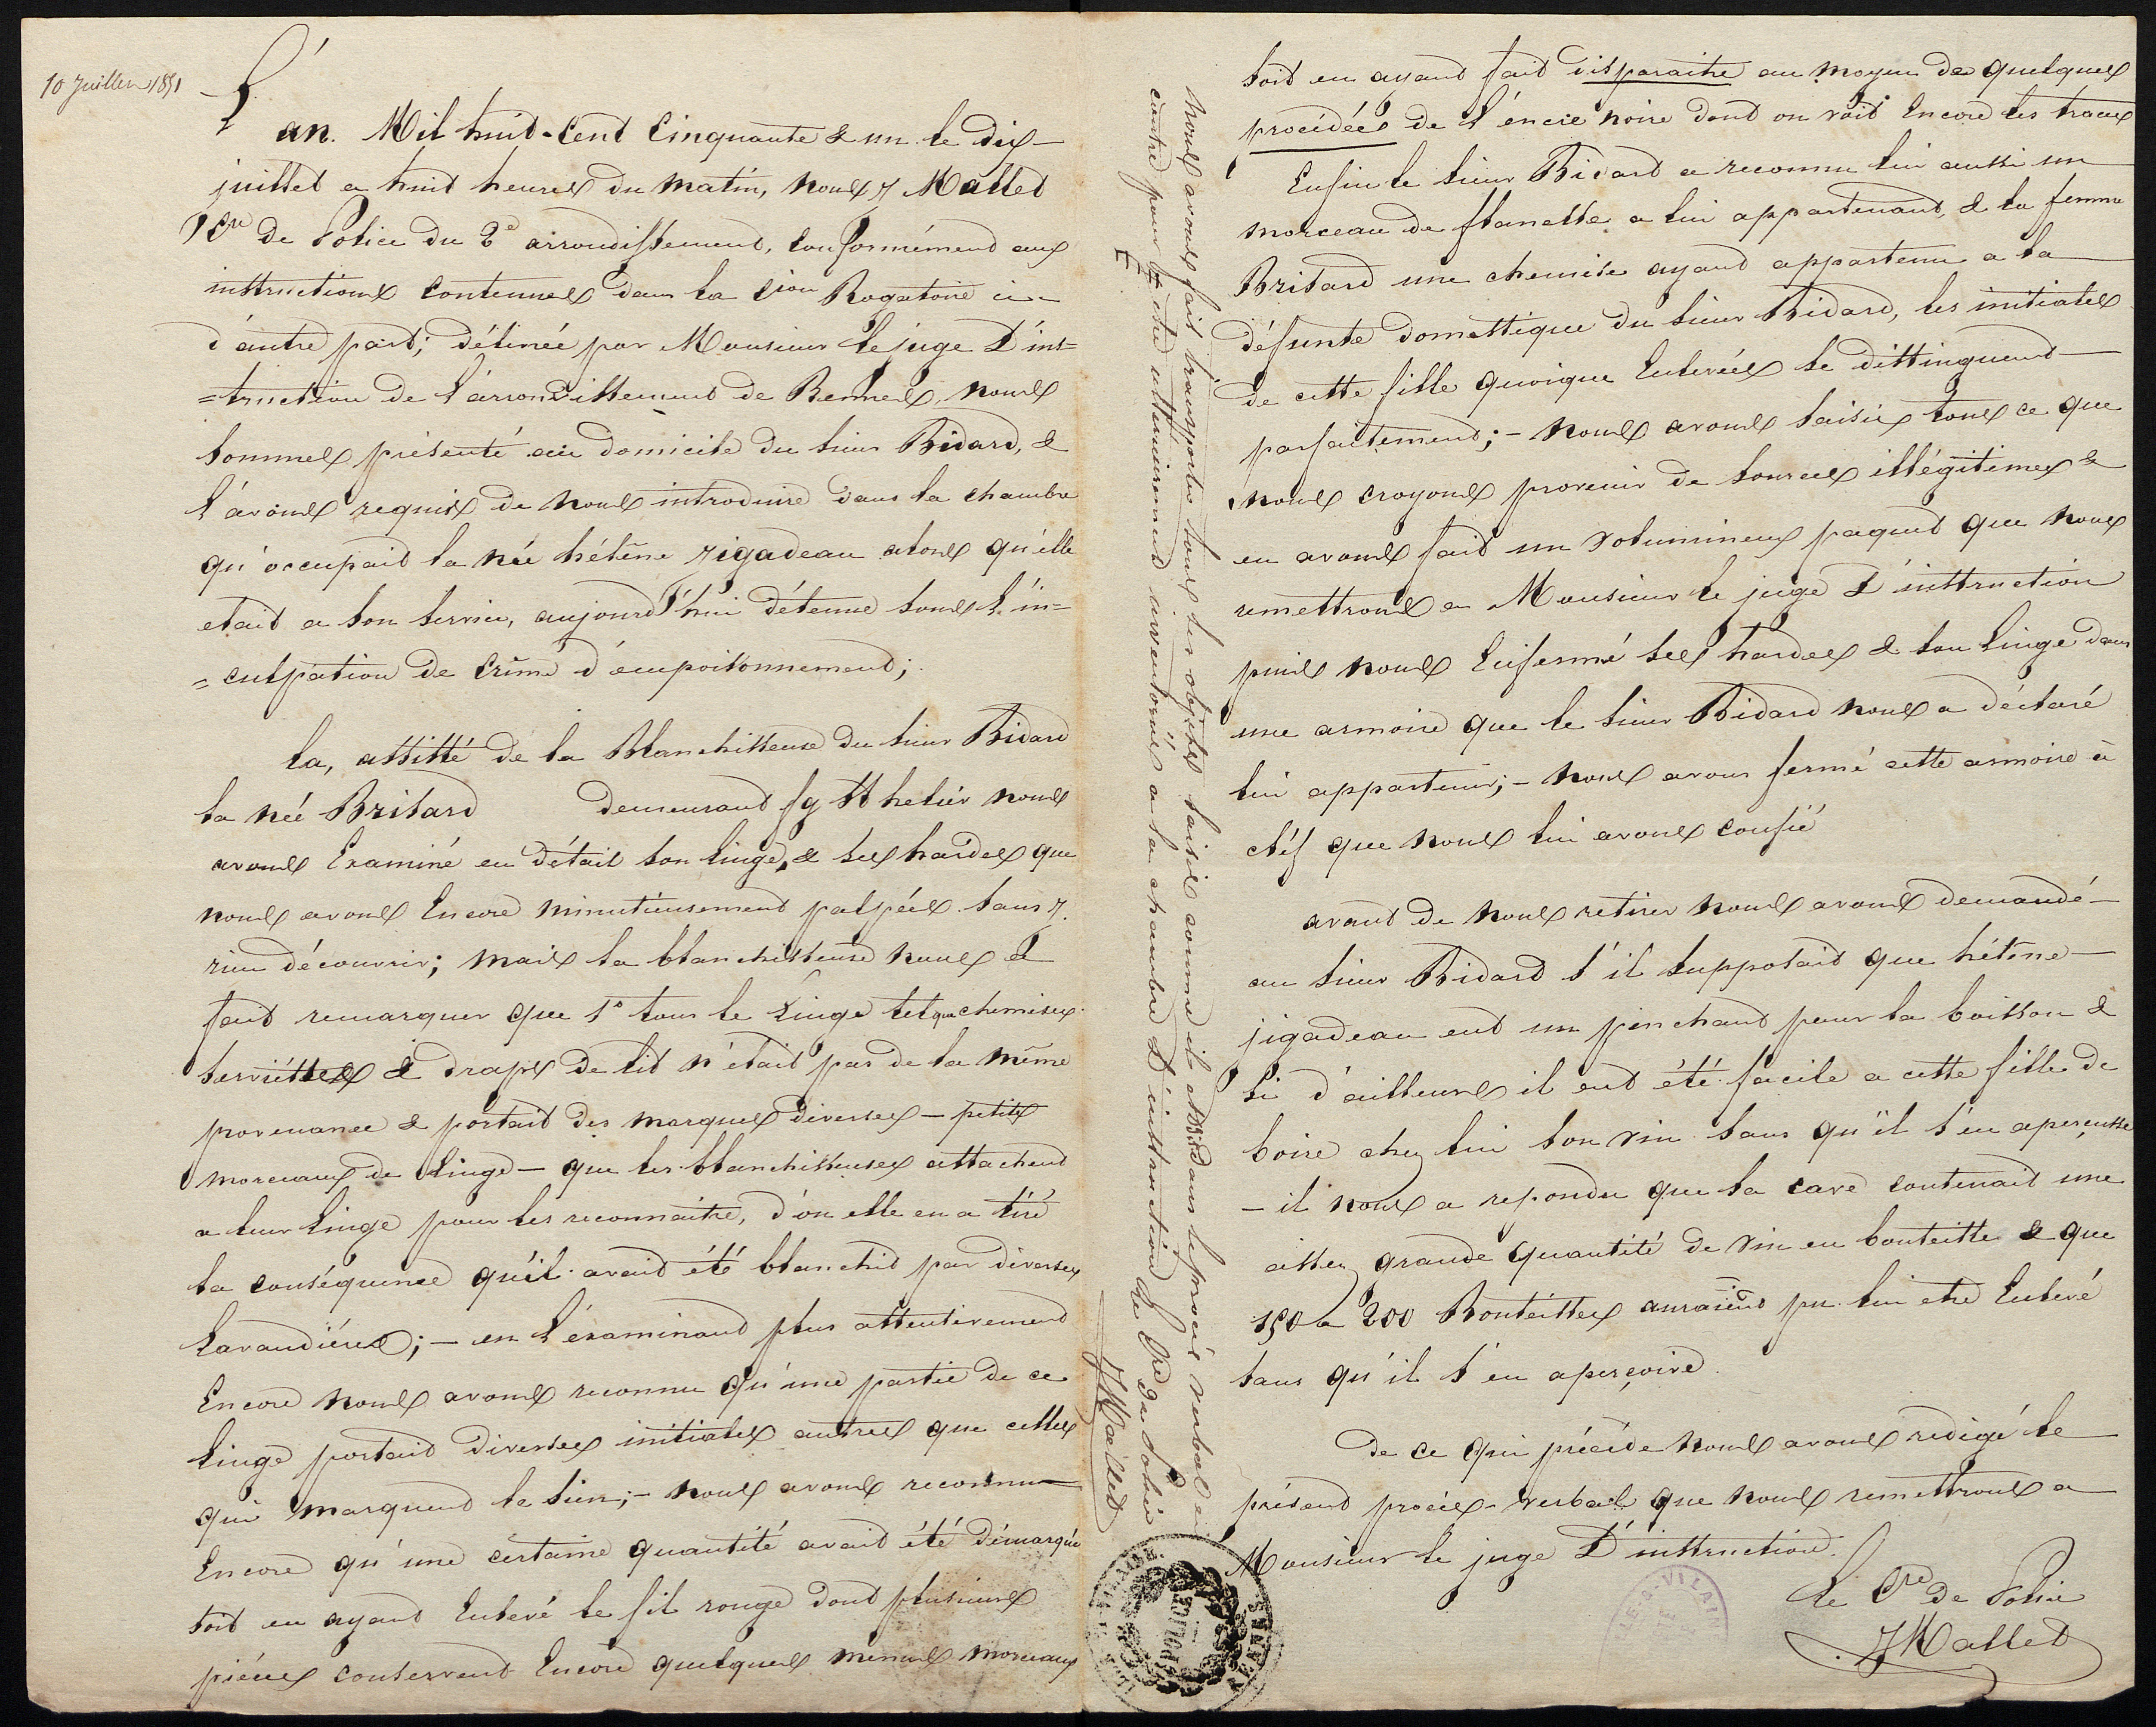 10 Juillet 1851
L'
an. Mil huit-Cent Cinquante & un le dix
juillet a huit heures du matin, nous J Mallet
Cre de Police du 2e arrondissement, conformément aux
instructions contenues dans la Cion Rogatoire ci-
d'autre part; délivrée par Monsieur le juge D'ins=
=truction de l'arrondissement de Rennes, nous
sommes présenté au domicile du sieur Bidard, &
l'avons requis de nous introduire dans la chambre
qu'occupait la née hélène jigadeau alors qu'elle
etait a son service, aujourd'hui détenue sous l'in=
=culpation de Crime d'empoisonnement;
la, assisté de la Blanchisseuse du sieur Bidard
la née Brisard demeurant fg St helier nous
avons Examiné en détail son linge, & ses hardes que
nous avons Encore minutieusement palpées sans
rien découvrir; mais la blanchisseuse nous a
fait remarquer que 1° tous le Linge tel que chemises
serviettes & draps de lit n'etait pas de la même
provenance & portait des marques diverses – petits
morceaux de linge – que les blanchisseuses attachent
a leur linge pour les reconnaitre, d'ou elle en a tiré
la conséquence qu'il avait été blanchit par diverses
Lavandières; – en l'examinant plus attentivement
Encore nous avons reconnu qu'une partie de ce
linge portait diverses initiales autres que celles
qui marquent le sien; – nous avons reconnu
Encore qu'une certaine quantité avait été démarquée
soit en ayant Enlevé le fil rouge dont plusieurs
pièces conservent Encore quelques menus morceaux
soit en ayant fait disparaitre au moyen de quelques
procédées de l'encre noire dont on voit Encore les traces
Enfin le sieur Bidard a reconnu lui aussi un
morceau de flanelle a lui appartenant, & la femme
Brisard une chemise ayant appartenu a la
défunte domestique du sieur Bidard, les initiales
de cette fille quoique Enlevées se distinguent
parfaitement; – nous avons saisie tous ce que
nous croyons provenir de sources illégitimes &
en avons fait un volumineux paquet que nous
remettrons a Monsieur le juge D'instruction
puis nous Enfermé ses hardes & son linge dans
une armoire que le sieur Bidard nous a déclaré
lui appartenir; – nous avons fermé cette armoire à
clef que nous lui avons confié
avant de nous retirer nous avons demandé
au sieur Bidard s'il supposait que hélène
jigadeau eut un penchant pour la boisson &
si d'ailleurs il eut été facile a cette fille de
boire chez lui son vin sans qu'il s'en aperçusse
– il nous a repondu que sa cave contenait une
assez grande quantité de vin en bouteille & que
150 a 200 Bouteilles auraient pu lui etre Enlevé
sans qu'il s'en aperçoive.
De ce qui précède nous avons redigé le
présent procès-verbal que nous remettrons a
Monsieur le juge D'instruction.
Le Cre de Police
J Mallet
Nous avons fait transporter tous les objets saisis comme il est dit dans le procès verbal ci
contre pour etre ultérieurement inventoriés a la chambre D'instruction Le Cre de Police
J Mallet
POLICE
RENNES
ILLE-&-VILAINE